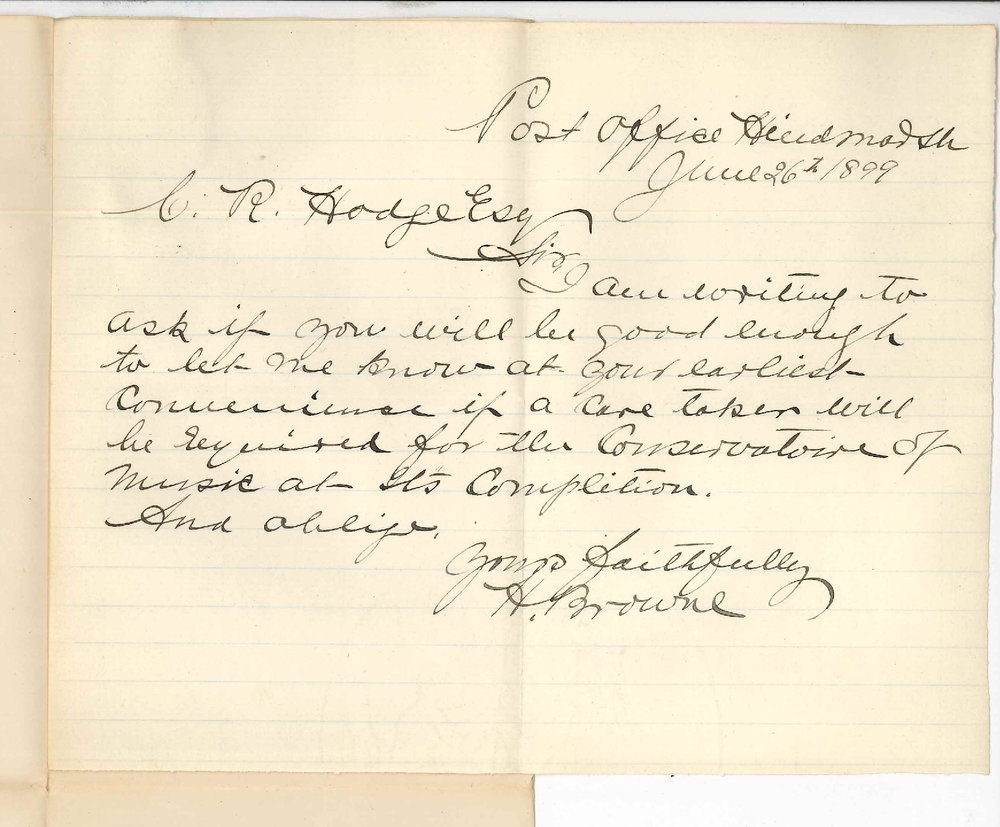 Post Office Hindmarsh
June 26th 1899
C. R. Hodge Esq
Sir
I am writing to
ask if you will be good enough
to let me know at your earliest
Convenience if a Care taker will
be required for the Conservatoire of
Music at its Complition.
And oblige.
Yours faithfully
H. Browne